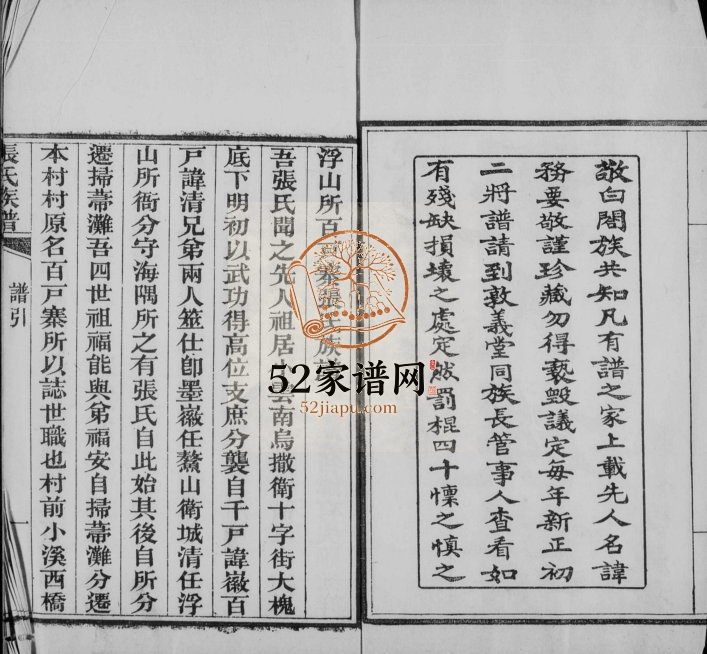 敬白閤族共知凡有譜之家上載先人名諱
務要敬謹珍藏勿得褻毀議定每年新正初
二將譜請到敦義堂同族長管事人查看如
有殘缺損壞之處定然罰棍四十懍之慎之
浮山所百戶寨張氏族
吾張氏聞之先人祖居雲南烏撒衛十字街大槐
底下明初以武功得高位支庶分襲自千戶諱嶶百
戶諱清兄弟兩人筮仕卽墨嶶任鰲山衛城清任浮
山所衙分守海隅所之有張氏自此始其後自所分
遷掃菷灘吾四世祖福能與弟福安自掃菷灘分遷
本村村原名百戶寨所以誌世職也村前小溪西橋
張氏族譜
譜引
一
52家谱网
52jiapu.com